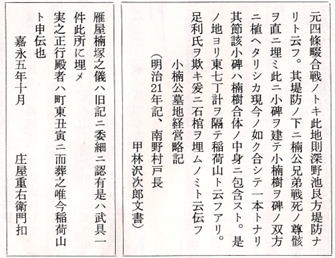 元四條畷合戦ノトキ此地則深野池艮方堤防ナ
リト云フ。其堤防ノ下ニ楠公兄弟戦死ノ尊骸
ヲ直ニ埋ミ此ニ小碑ヲ建テ小楠樹ヲ碑ノ双方
ニ植ヘタリシカ現今ノ如ク合シテ一本トナリ
其節該小碑ハ楠樹合体ノ中身ニ包含スト。是
ノ地ヨリ東七丁計ヲ隔テ稲荷山ト云フアリ。
足利氏ヲ欺キ爰ニ石棺ヲ埋ムノミト云伝フ
小楠公墓地経営略記
(明治21年記、南野村戸長
甲林沢次郎文書)
雁屋楠塚之儀ハ旧記ニ委細ニ認有是ハ武具一
件此所に埋メ
実之正行殿者ハ町東丑寅ニ而葬之唯今稲荷山
ト申伝也
嘉永五年十月
庄屋重右衛門扣